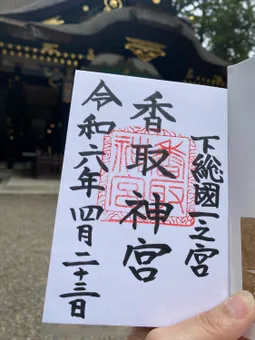 下総國一之宮
香取神宮
令和六年四月二十三日
香取神宮